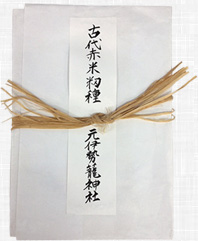 古代赤米籾種
元伊勢籠神社